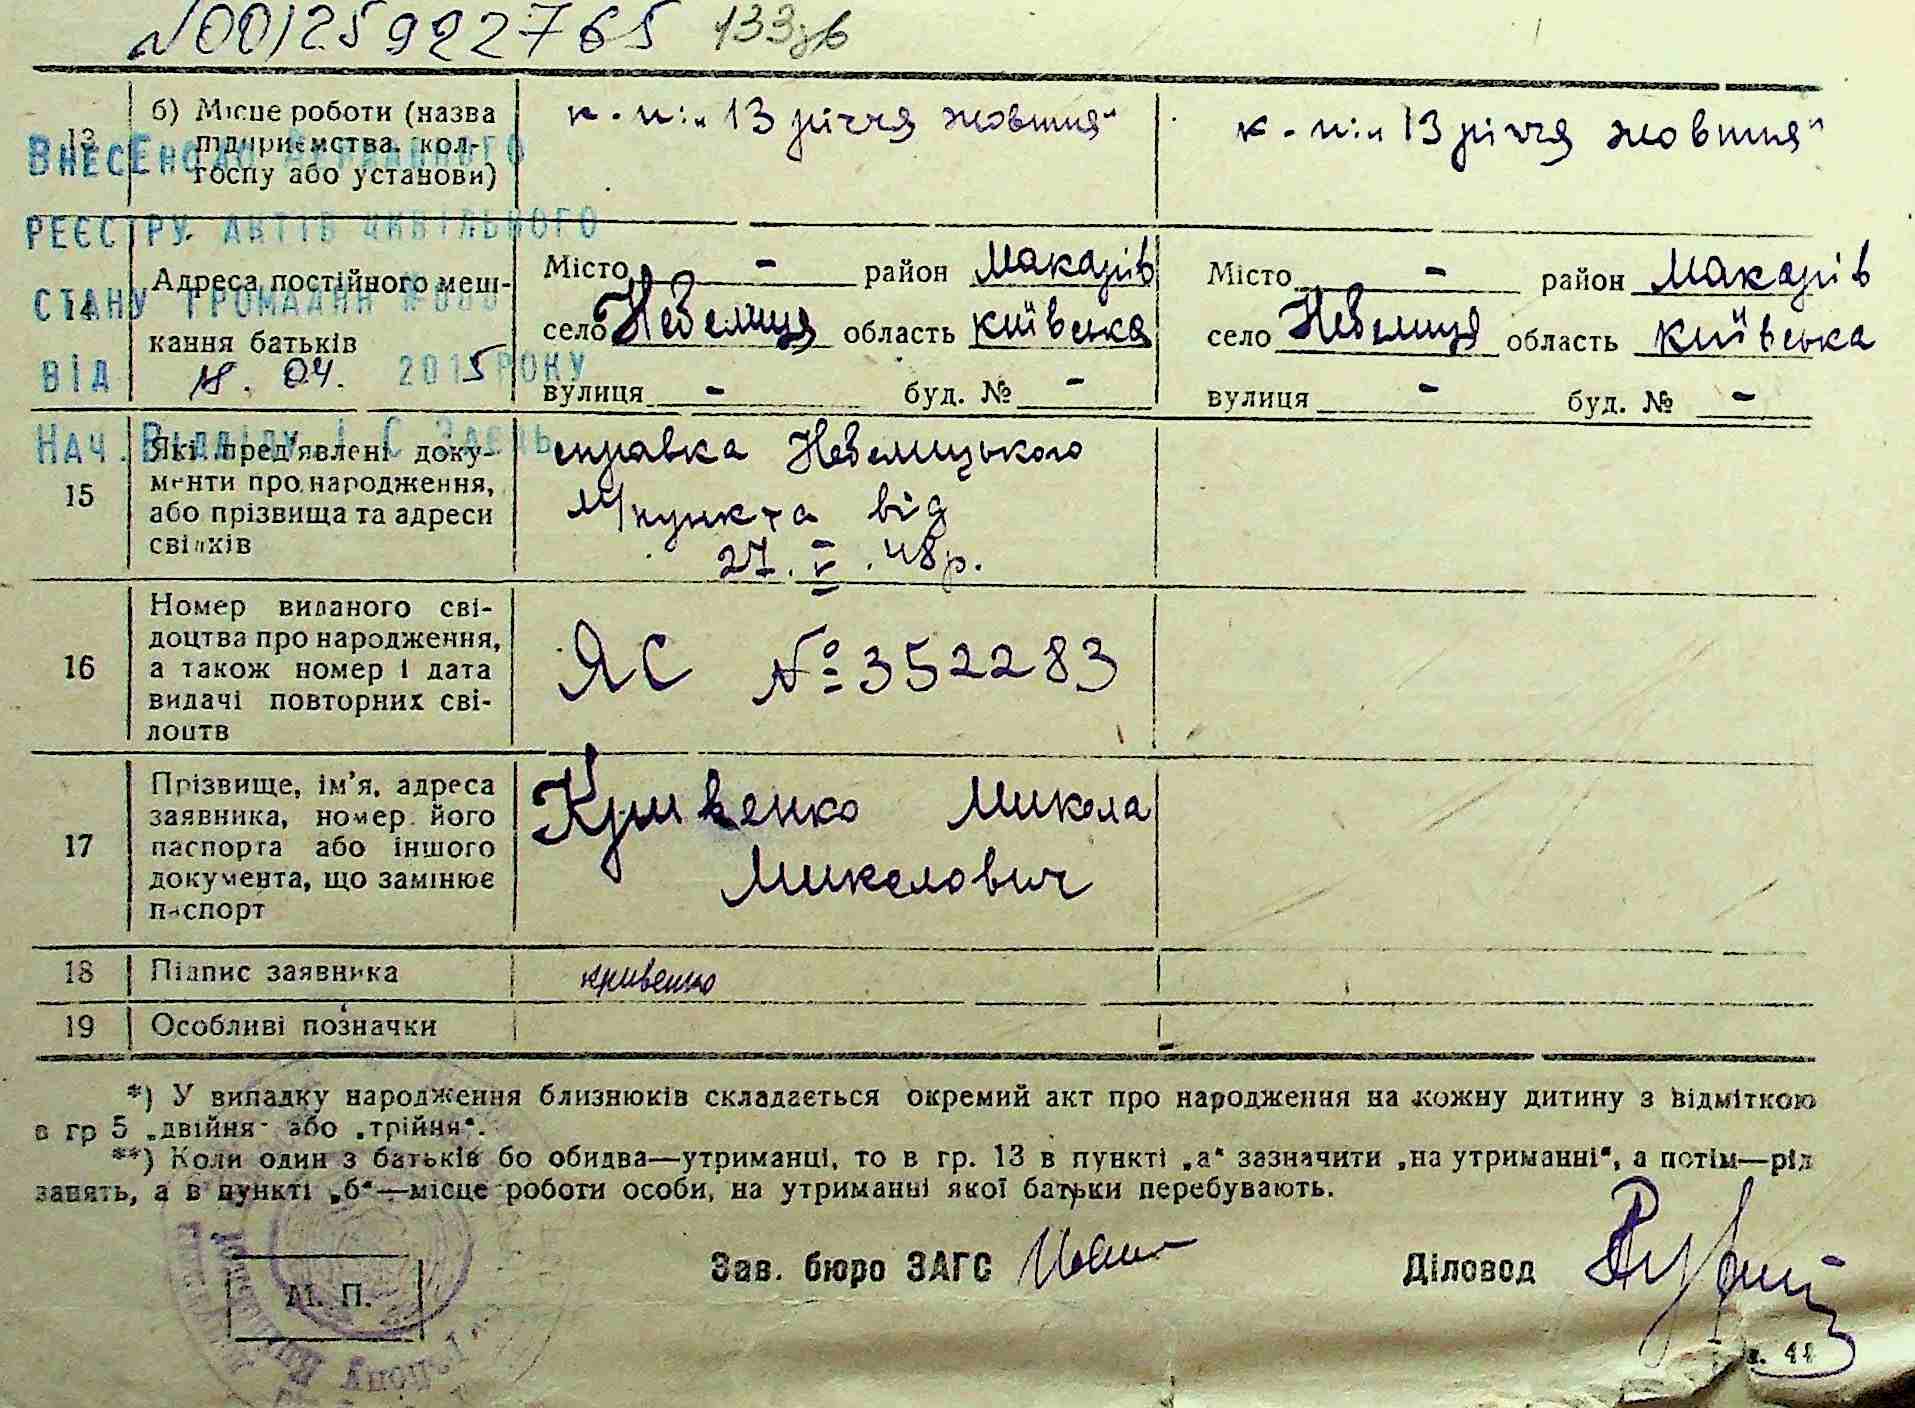 №00125922765 133зв
13 б) Місце роботи (назва підприємства, колгоспу або установи) к-п: „13 річчя жовтня" к-п: „13 річчя жовтня"
Внесено до Державного
реєстру актів цивільного
стану громадян №
від 18. 04. 2015 року
Нач. Відділу І.С.Заєць
14 Адреса постійного меш-
кання батьків
Місто - район Макарів Місто - район Макарів
село Небелиця область Київська село Небелиця область Київська
вулиця - буд. № - вулиця - буд. № -
15 Які пред'явлені доку-
менти про народження,
або прізвища та адреси
свідків
справка Небелицького
м/пункта від
27. V. 48р.
16 Номер виданого сві-
доцтва про народження,
а також номер і дата
видачі повторних сві-
доцтв
ЯС № 352283
17 Прізвище, ім'я, адреса
заявника, номер його
паспорта або іншого
документа, що замінює
паспорт
Кривенко Микола
Миколович
18 Підпис заявника Кривенко
19 Особливі позначки
*) У випадку народження близнюків складається окремий акт про народження на кожну дитину з відміткою
в гр 5 „двійня" або „трійня".
**) Коли один з батьків бо обидва—утриманці, то в гр. 13 в пункті „а" зазначити „на утриманні", а потім—рід
занять, а в пункті „б"—місце роботи особи, на утриманні якої батьки перебувають.
Зав. бюро ЗАГС Діловод
М. П.